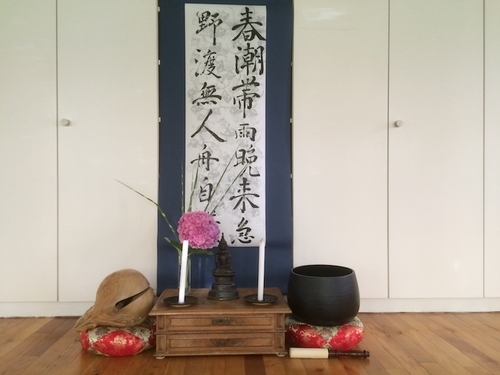 春潮帶雨晚来急
野渡無人舟自